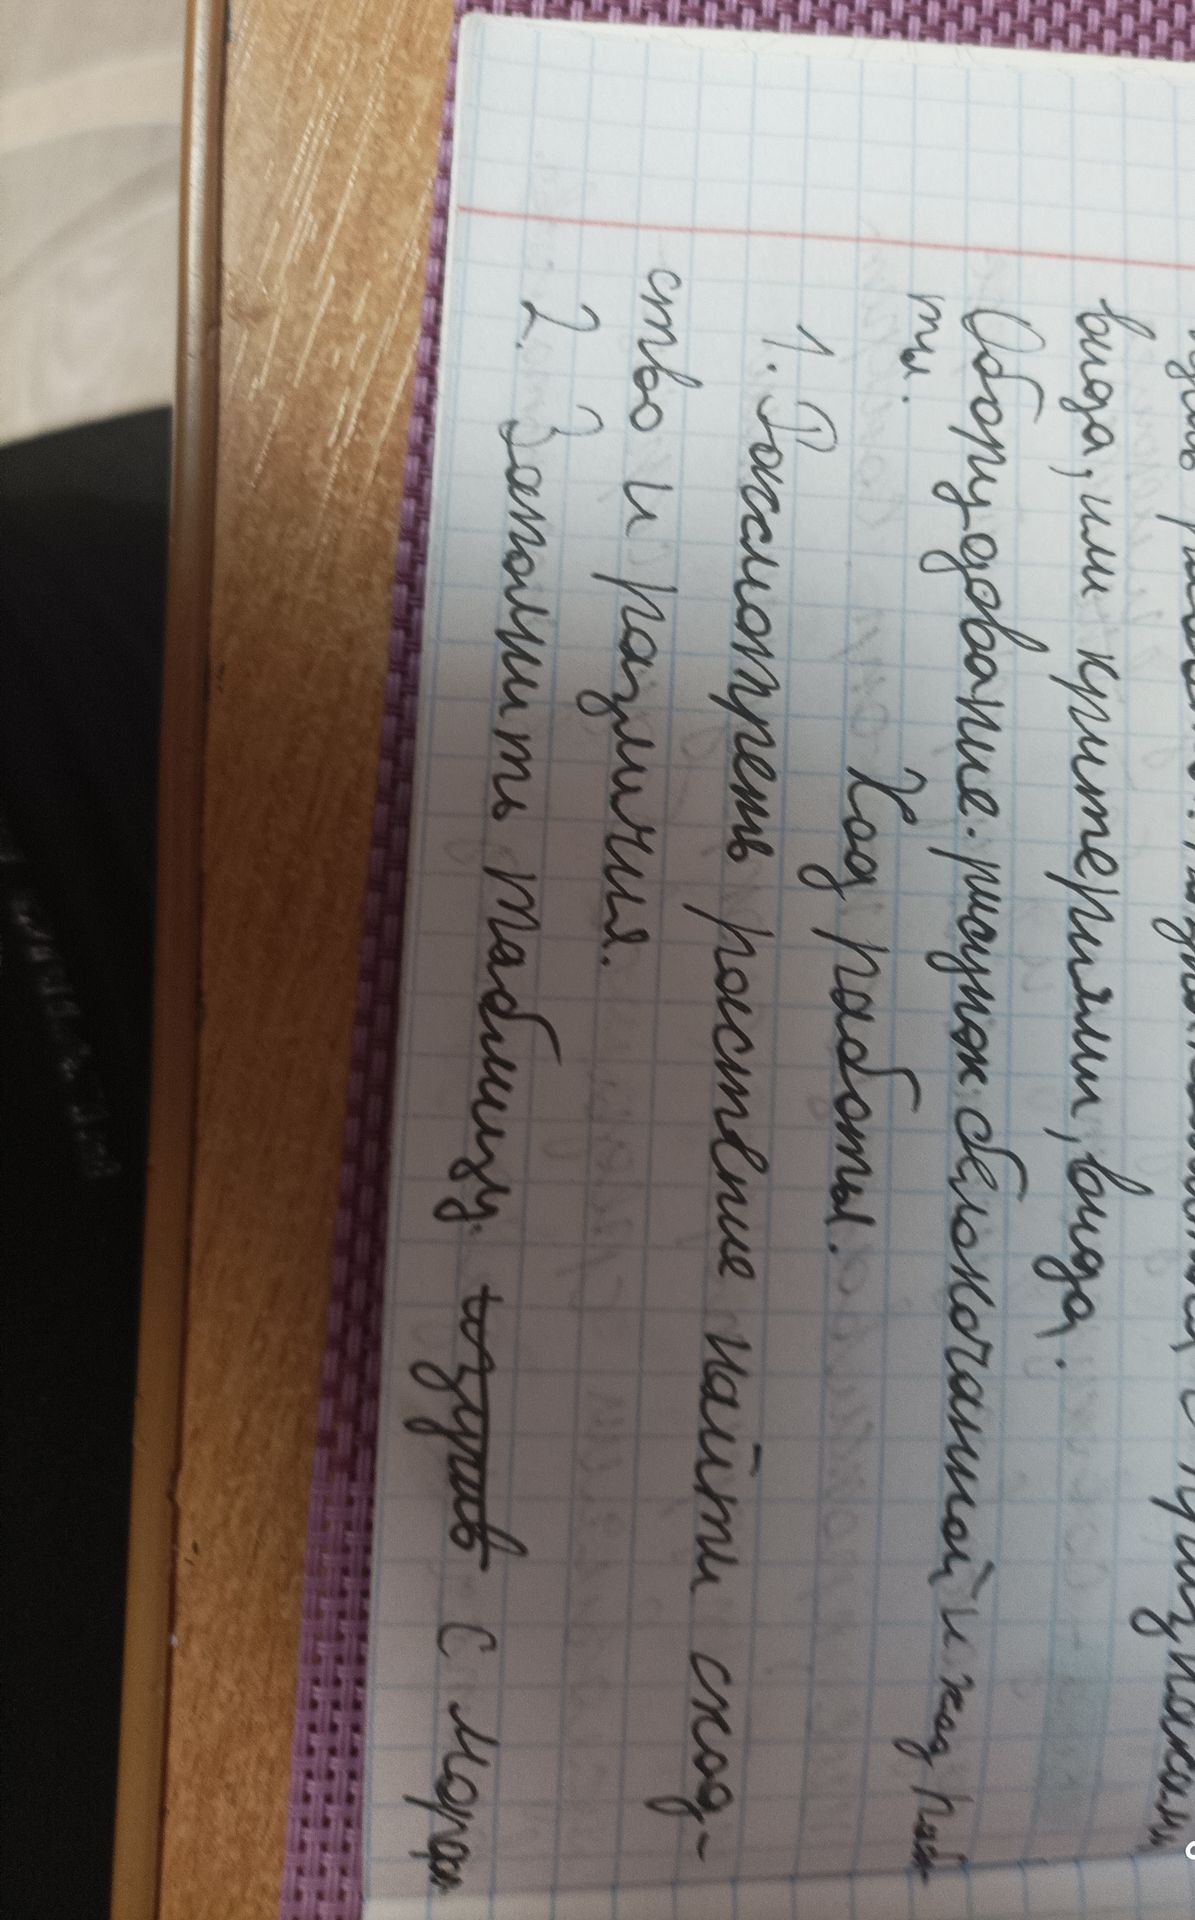 вида, или критериями, вида.
Оборудование: рисунок белокочанной и ход рабо-
ты.
Ход работы.
1. Рассмотреть растение найти сход-
ство и различия.
2. Заполнить таблицу. с